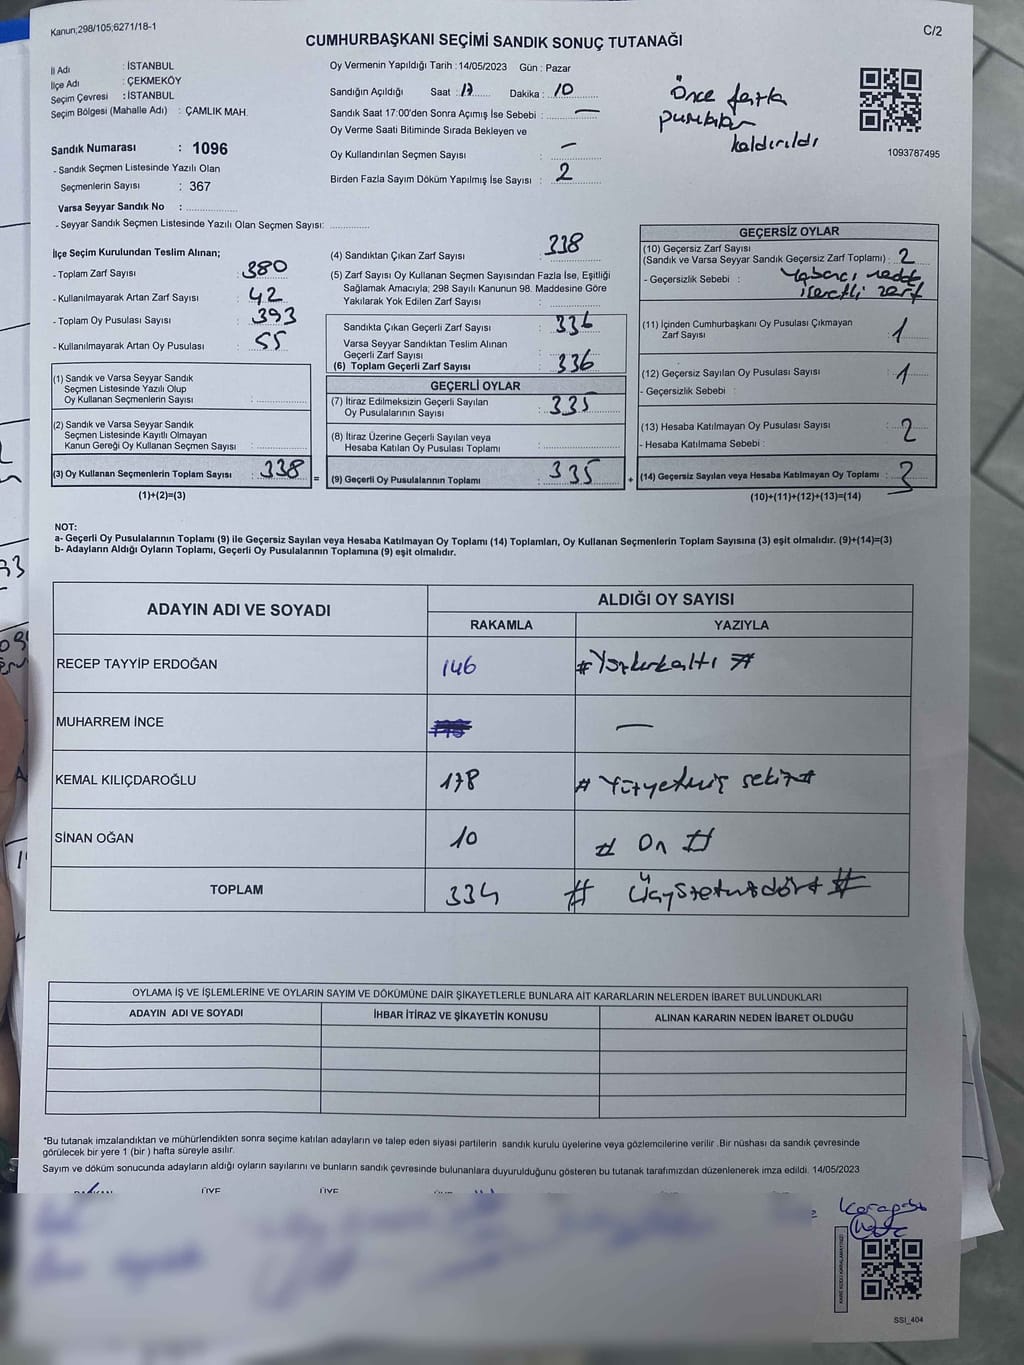 Kanun;298/105;6271/18-1
C/2
CUMHURBAŞKANI SEÇİMİ SANDIK SONUÇ TUTANAĞI
İl Adı : İSTANBUL
İlçe Adı : ÇEKMEKÖY
Seçim Çevresi : İSTANBUL
Seçim Bölgesi (Mahalle Adı) : ÇAMLIK MAH.
Sandık Numarası : 1096
- Sandık Seçmen Listesinde Yazılı Olan
Seçmenlerin Sayısı : 367
Varsa Seyyar Sandık No :
- Seyyar Sandık Seçmen Listesinde Yazılı Olan Seçmen Sayısı:
Oy Vermenin Yapıldığı Tarih : 14/05/2023 Gün : Pazar
Sandığın Açıldığı Saat : 17 Dakika : 10
Sandık Saat 17:00'den Sonra Açımış İse Sebebi : —
Oy Verme Saati Bitiminde Sırada Bekleyen ve
Oy Kullandırılan Seçmen Sayısı : —
Birden Fazla Sayım Döküm Yapılmış İse Sayısı : 2
Önce fazla
pusulalar
kaldırıldı
1093787495
İlçe Seçim Kurulundan Teslim Alınan;
- Toplam Zarf Sayısı : 380
- Kullanılmayarak Artan Zarf Sayısı : 42
- Toplam Oy Pusulası Sayısı : 393
- Kullanılmayarak Artan Oy Pusulası : 55
(1) Sandık ve Varsa Seyyar Sandık
Seçmen Listesinde Yazılı Olup
Oy Kullanan Seçmenlerin Sayısı :
(2) Sandık ve Varsa Seyyar Sandık
Seçmen Listesinde Kayıtlı Olmayan
Kanun Gereği Oy Kullanan Seçmen Sayısı :
(3) Oy Kullanan Seçmenlerin Toplam Sayısı : 338
(1)+(2)=(3)
=
(4) Sandıktan Çıkan Zarf Sayısı : 338
(5) Zarf Sayısı Oy Kullanan Seçmen Sayısından Fazla İse, Eşitliği
Sağlamak Amacıyla; 298 Sayılı Kanunun 98. Maddesine Göre
Yakılarak Yok Edilen Zarf Sayısı :
Sandıkta Çıkan Geçerli Zarf Sayısı : 336
Varsa Seyyar Sandıktan Teslim Alınan
Geçerli Zarf Sayısı :
(6) Toplam Geçerli Zarf Sayısı : 336
GEÇERLİ OYLAR
(7) İtiraz Edilmeksizin Geçerli Sayılan
Oy Pusulalarının Sayısı : 335
(8) İtiraz Üzerine Geçerli Sayılan veya
Hesaba Katılan Oy Pusulası Toplamı :
(9) Geçerli Oy Pusulalarının Toplamı : 335
+
GEÇERSİZ OYLAR
(10) Geçersiz Zarf Sayısı
(Sandık ve Varsa Seyyar Sandık Geçersiz Zarf Toplamı) : 2
- Geçersizlik Sebebi : Yabancı madde
işaretli zarf
(11) İçinden Cumhurbaşkanı Oy Pusulası Çıkmayan
Zarf Sayısı : 1
(12) Geçersiz Sayılan Oy Pusulası Sayısı : 1
- Geçersizlik Sebebi :
(13) Hesaba Katılmayan Oy Pusulası Sayısı : 2
- Hesaba Katılmama Sebebi :
(14) Geçersiz Sayılan veya Hesaba Katılmayan Oy Toplamı : 3
(10)+(11)+(12)+(13)=(14)
NOT:
a- Geçerli Oy Pusulalarının Toplamı (9) ile Geçersiz Sayılan veya Hesaba Katılmayan Oy Toplamı (14) Toplamları, Oy Kullanan Seçmenlerin Toplam Sayısına (3) eşit olmalıdır. (9)+(14)=(3)
b- Adayların Aldığı Oyların Toplamı, Geçerli Oy Pusulalarının Toplamına (9) eşit olmalıdır.
ADAYIN ADI VE SOYADI
ALDIĞI OY SAYISI
RAKAMLA YAZIYLA
RECEP TAYYİP ERDOĞAN 146 # Yüzkırkaltı #
MUHARREM İNCE —
KEMAL KILIÇDAROĞLU 178 # Yüzyetmiş sekiz #
SİNAN OĞAN 10 # On #
TOPLAM 334 # Üçyüzotuzdört #
OYLAMA İŞ VE İŞLEMLERİNE VE OYLARIN SAYIM VE DÖKÜMÜNE DAİR ŞİKAYETLERLE BUNLARA AİT KARARLARIN NELERDEN İBARET BULUNDUKLARI
ADAYIN ADI VE SOYADI İHBAR İTİRAZ VE ŞİKAYETİN KONUSU ALINAN KARARIN NEDEN İBARET OLDUĞU
*Bu tutanak imzalandıktan ve mühürlendikten sonra seçime katılan adayların ve talep eden siyasi partilerin sandık kurulu üyelerine veya gözlemcilerine verilir .Bir nüshası da sandık çevresinde
görülecek bir yere 1 (bir ) hafta süreyle asılır.
Sayım ve döküm sonucunda adayların aldığı oyların sayılarını ve bunların sandık çevresinde bulunanlara duyurulduğunu gösteren bu tutanak tarafımızdan düzenlenerek imza edildi. 14/05/2023
BAŞKAN ÜYE ÜYE
SSI_404